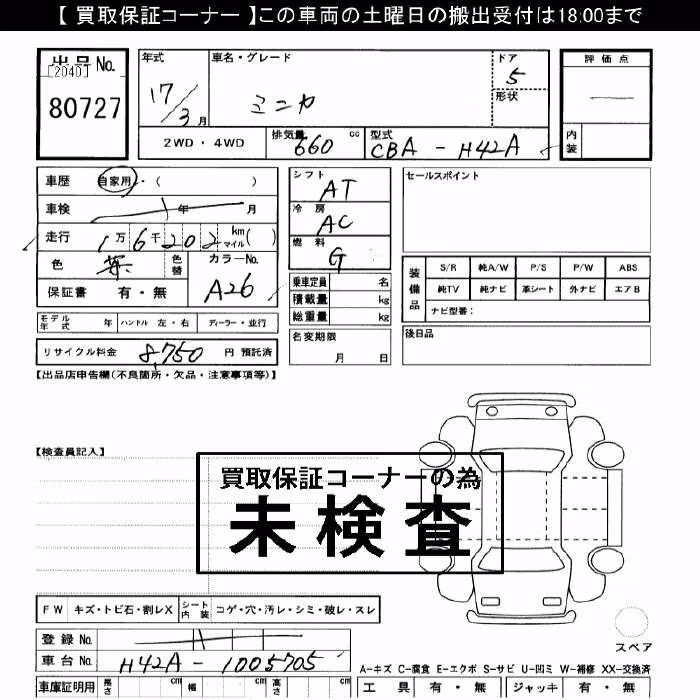 【 買取保証コーナー 】この車両の土曜日の搬出受付は18:00まで
出品No.
[2040]
80727
年式
17/3月
車名・グレード
ミニカ
ドア
5
形状
評価点
内装
2WD・4WD
排気量 660 cc
型式 CBA-H42A
車歴 自家用・( )
車検 年 月
走行 1万6千202 km マイル( )
色
色替
カラーNo.
A26
保証書 有・無
シフト
AT
冷房
AC
燃料
G
乗車定員 名
積載量 kg
総重量 kg
名変期限
月 日
セールスポイント
装備品
S/R 純A/W P/S P/W ABS
純TV 純ナビ 革シート 外ナビ エアB
ナビ型番:
後日品
モデル年式 年 ハンドル 左・右 ディーラー・並行
リサイクル料金 8,750 円 預託済
【出品店申告欄(不良箇所・欠品・注意事項等)】
【検査員記入】
買取保証コーナーの為
未検査
FW キズ・トビ石・割レX シート内装 コゲ・穴・汚レ・シミ・破レ・スレ
登録No.
車台No. H42A-1005705
スペア
A-キズ C-腐食 E-エクボ S-サビ U-凹ミ W-補修 XX-交換済
車庫証明用 長さ cm 幅 cm 高さ cm
工具 有・無 ジャッキ 有・無